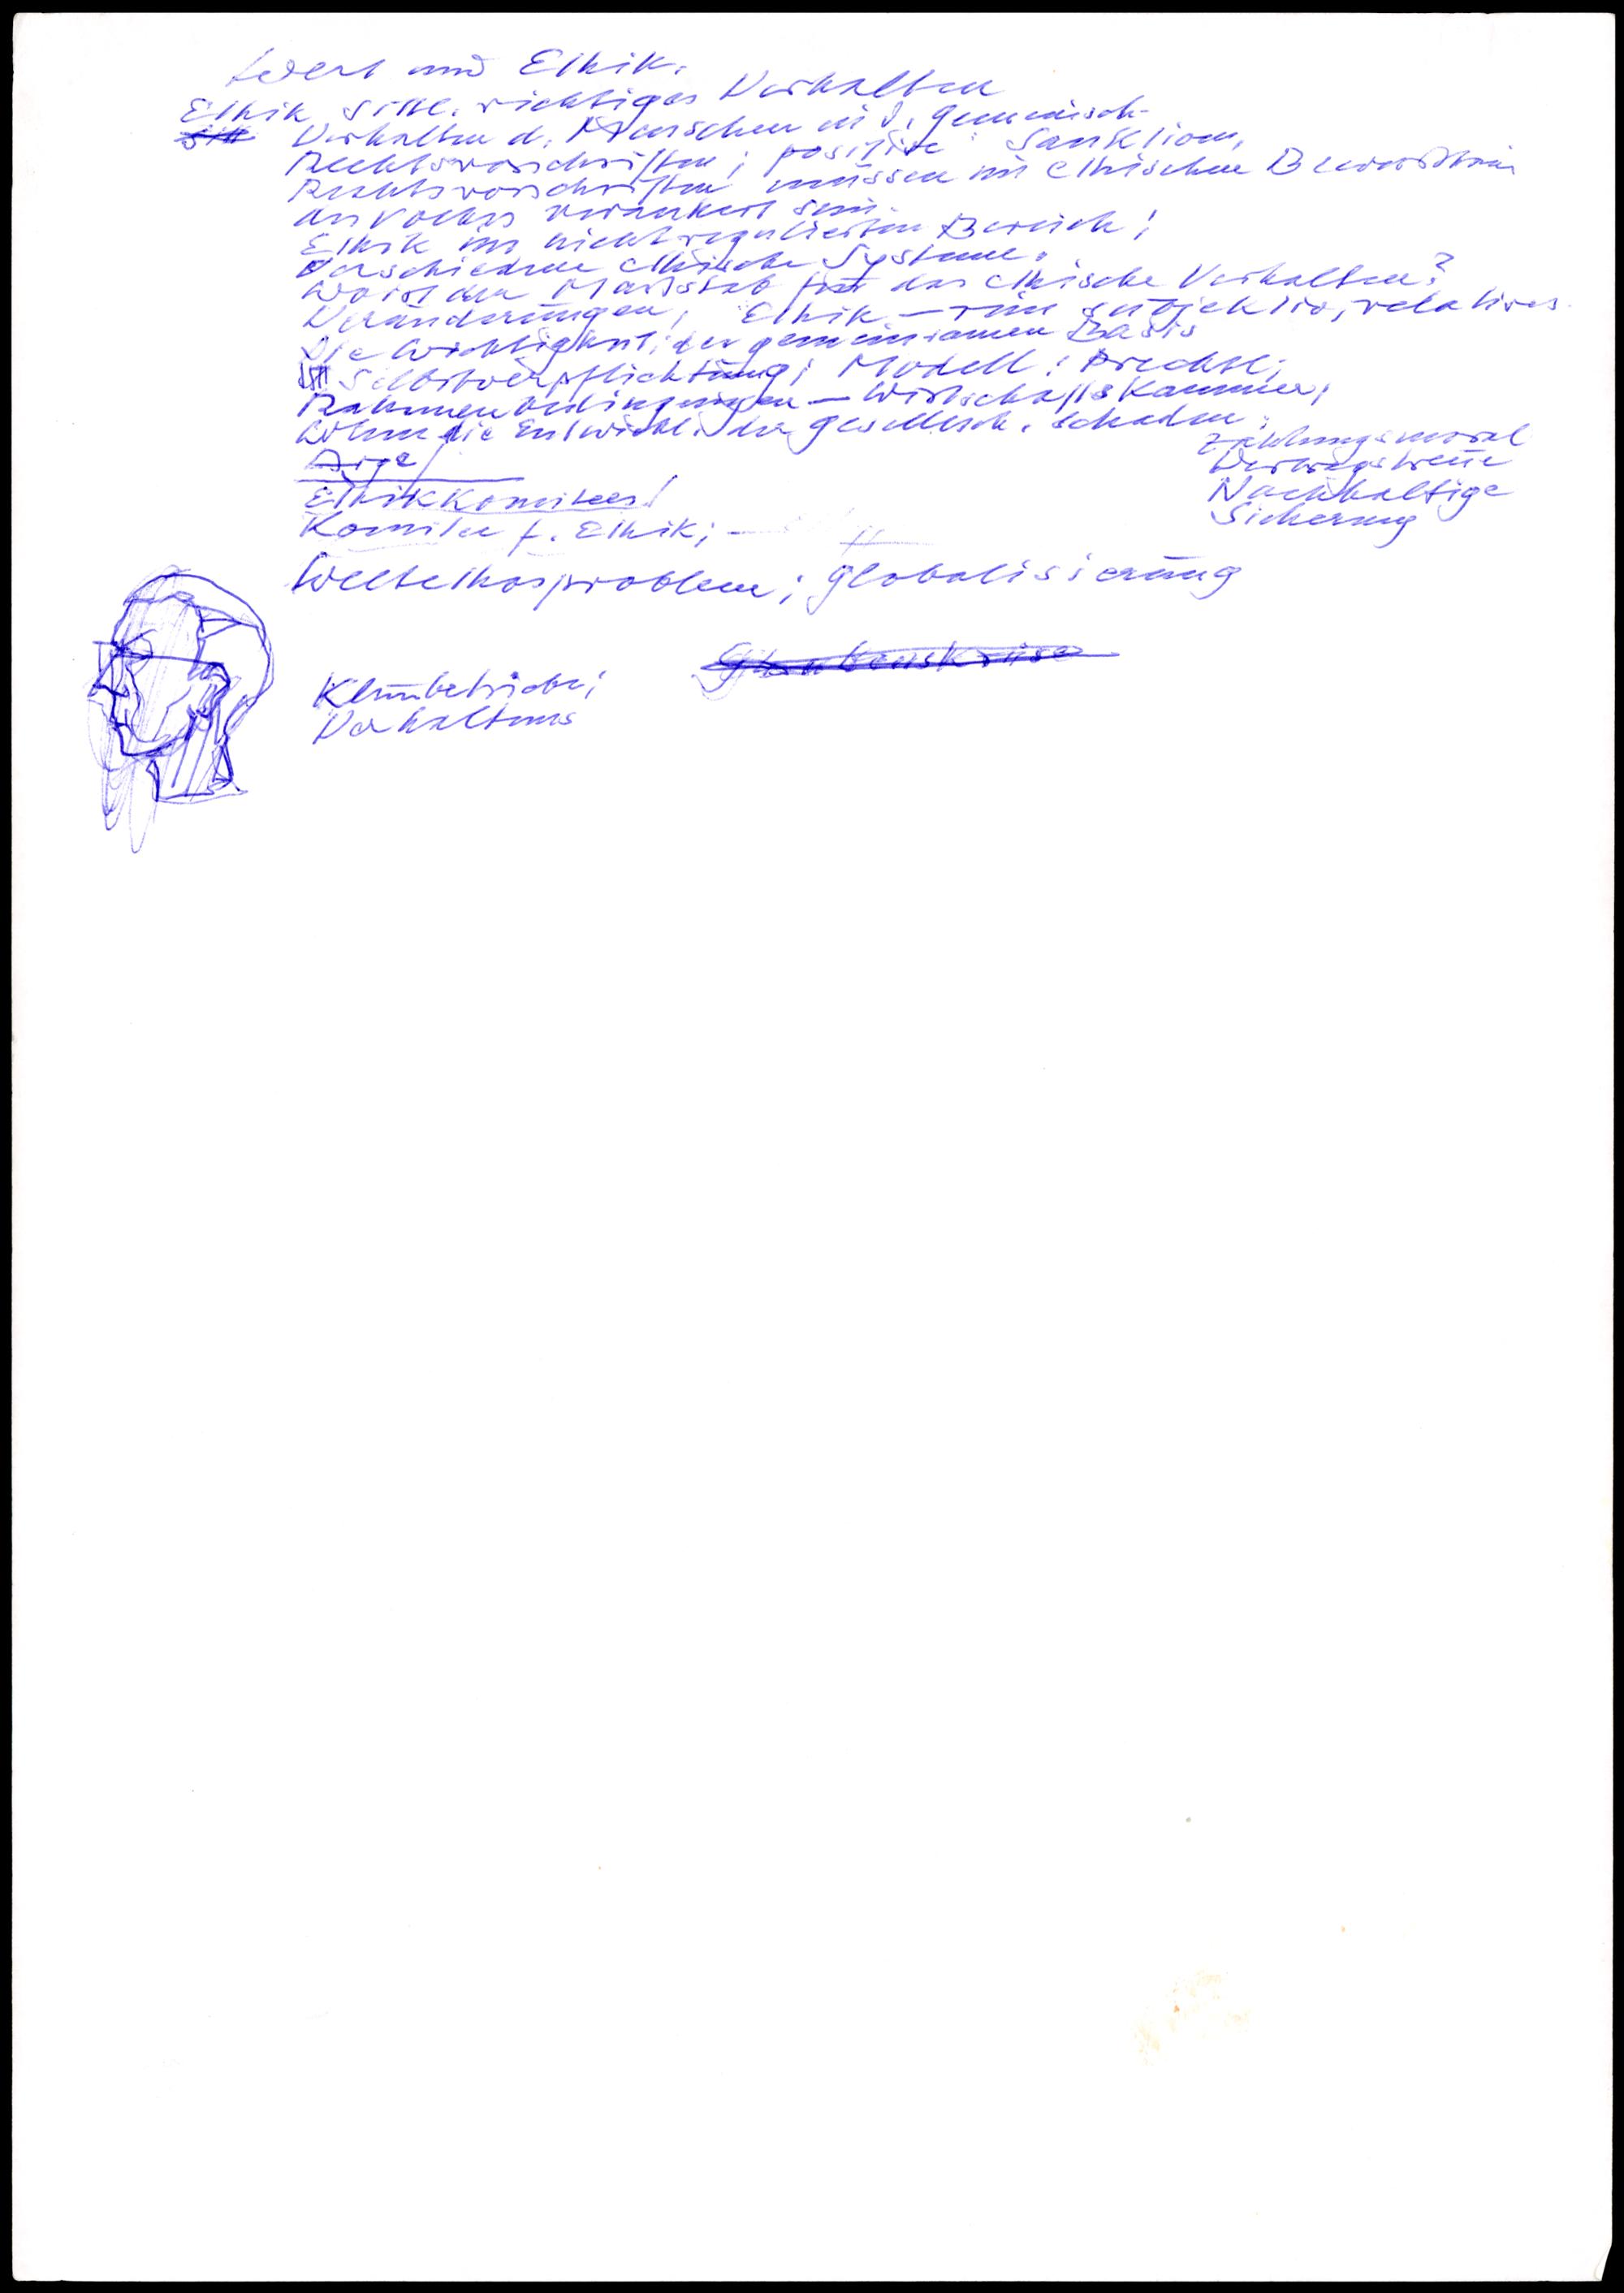 Wert und Ethik.
Ethik sittl. richtiges Verhalten
Verhalten d. Menschen in d. Gemeinsch.
Rechtsvorschriften; positive Sanktion,
Rechtsvorschriften müssen im ethischen Bewusstsein
des Volkes verankert sein.
Ethik im nicht regulierten Bereich;
Verschiedene ethische Systeme.
Wo ist der Massstab für das ethische Verhalten?
Veränderungen, Ethik — rein subjektiv, relatives
Die Wichtigkeit der gemeinsamen Basis
Selbstverpflichtung; Modell:
Rahmenbedingungen — Wirtschaftskammer,
die Entwickl. der Gesellsch. schaden.
Zahlungsmoral
Vertragstreue
Nachhaltige
Sicherung
Arge
Ethikkomitees!
Komitee f. Ethik; —
Weltethosproblem; Globalisierung
Glaubenskrise